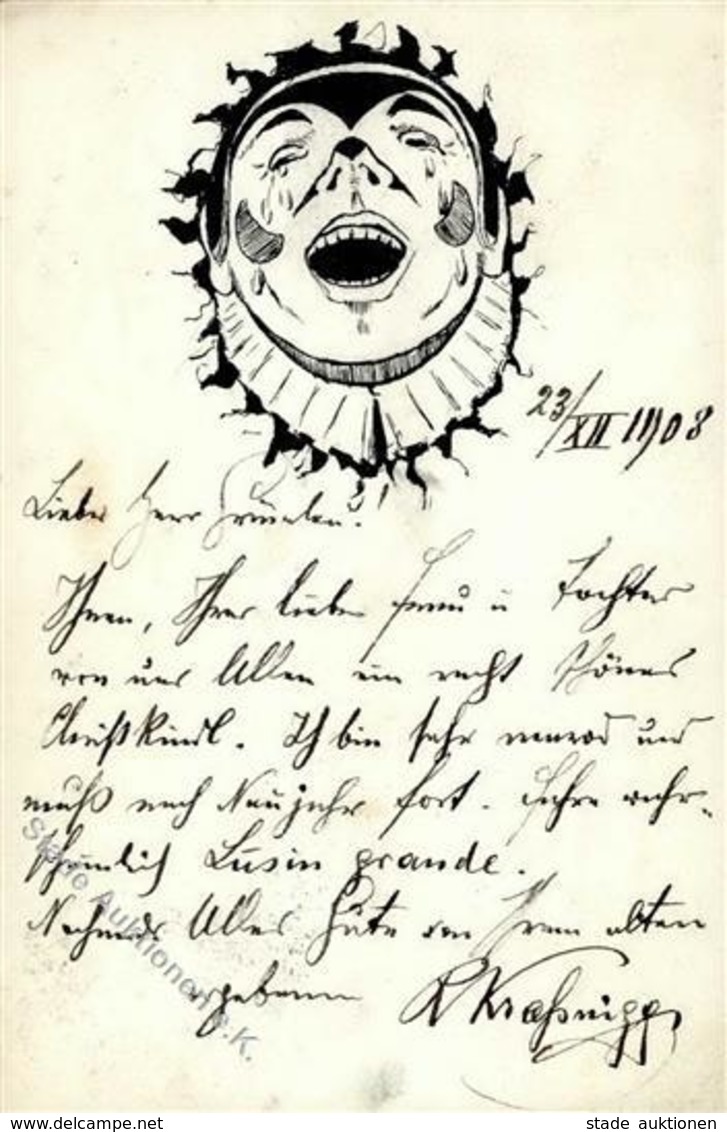 23/XII 1908
Lieber Herr
Ihnen, Ihrer lieben Frau u Tochter
von uns Allen ein recht schönes
Christkindl. Ich bin sehr nervos und
muß nach Neujahr fort. Fahre wahr-
scheinlich Lusin grande.
Nochmals Alles Gute von Ihrem alten
ergebenen R Kraßnigg
Stade Auktionen e.K.
www.delcampe.net
stade auktionen